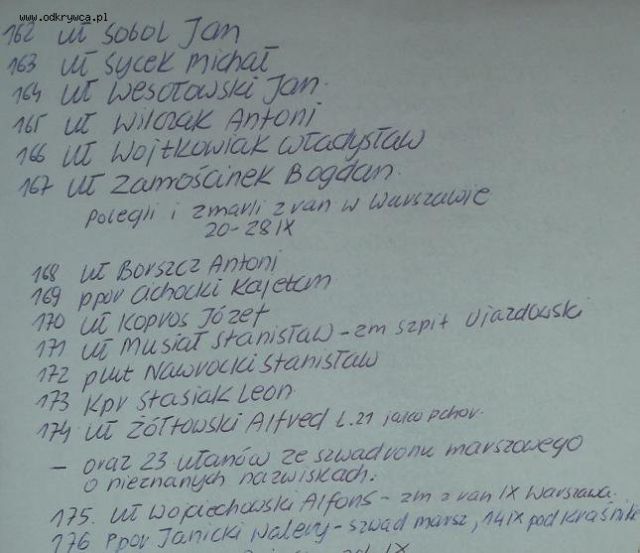 www.odkrywca.pl
162 uł Sobol Jan
163 uł Sycek Michał
164 uł Wesołowski Jan.
165 uł Wilczak Antoni
166 uł Wojtkowiak Władysław
167 uł Zamościnek Bogdan.
Polegli i zmarli z ran w Warszawie
20-28 IX
168 uł Borszcz Antoni
169 ppor Cichocki Kajetan
170 uł Kopros Józef
171 uł Musiał Stanisław - zm szpit Ujazdowski
172 plut Nawrocki Stanisław
173 kpr Stasiak Leon
174 uł Żółtowski Alfred L.21 jako pchor.
- oraz 23 ułanów ze szwadronu marszowego
o nieznanych nazwiskach.
175. uł Wojciechowski Alfons - zm z ran IX Warszawa.
176 ppor Janicki Walery - szwad marsz, 14 IX pod Kraśnik
IX